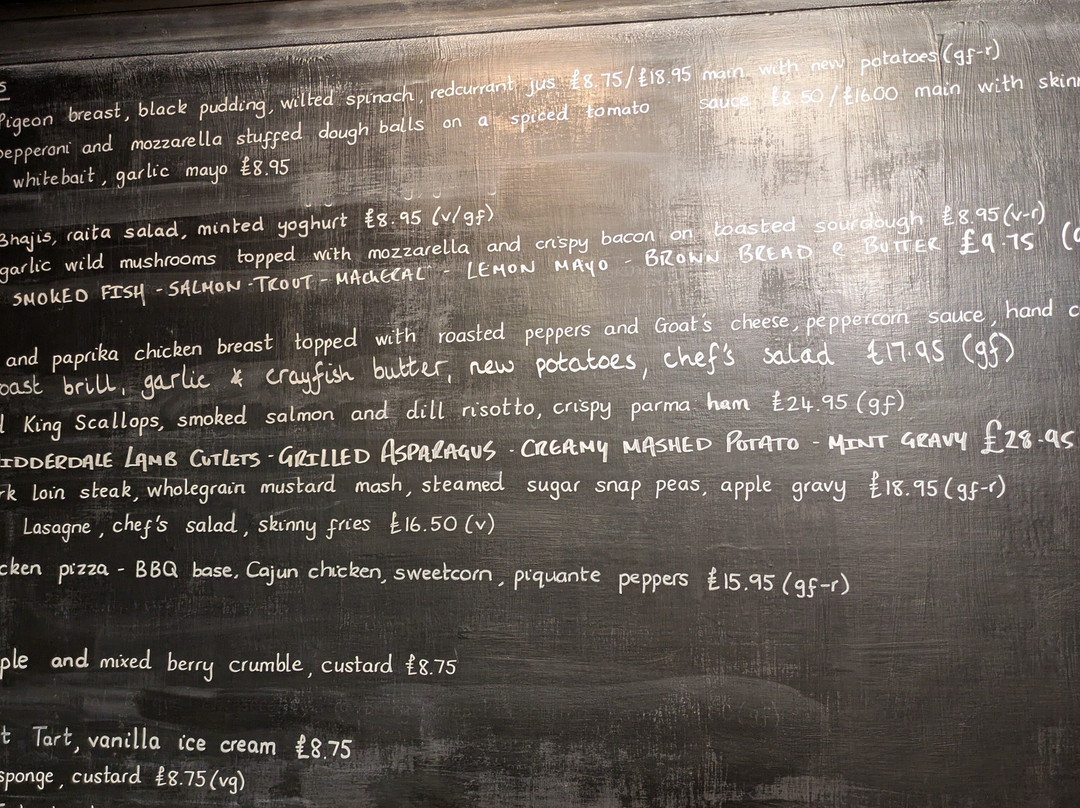 s
Pigeon breast, black pudding, wilted spinach, redcurrant jus £8.75/£18.95 main with new potatoes (gf-r)
pepperoni and mozzarella stuffed dough balls on a spiced tomato sauce £8.50/£16.00 main with skinn
whitebait, garlic mayo £8.95
Bhajis, raita salad, minted yoghurt £8.95 (v/gf)
garlic wild mushrooms topped with mozzarella and crispy bacon on toasted sourdough £8.95 (v-r)
SMOKED FISH - SALMON - TROUT - MACKERAL - LEMON MAYO - BROWN BREAD & BUTTER £9.75 (
and paprika chicken breast topped with roasted peppers and Goat's cheese, peppercorn sauce, hand c
oast brill, garlic & crayfish butter, new potatoes, chef's salad £17.95 (gf)
d King Scallops, smoked salmon and dill risotto, crispy parma ham £24.95 (gf)
IDDERDALE LAMB CUTLETS - GRILLED ASPARAGUS - CREAMY MASHED POTATO - MINT GRAVY £28.95
rk loin steak, wholegrain mustard mash, steamed sugar snap peas, apple gravy £18.95 (gf-r)
Lasagne, chef's salad, skinny fries £16.50 (v)
cken pizza - BBQ base, Cajun chicken, sweetcorn, piquante peppers £15.95 (gf-r)
ple and mixed berry crumble, custard £8.75
t Tart, vanilla ice cream £8.75
sponge, custard £8.75 (vg)